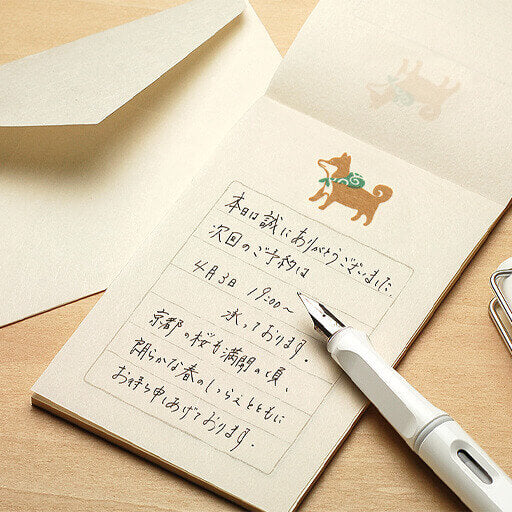 本日は誠にありがとうございました.
次回のご予約は
4月3日 19:00〜
承っております.
京都の桜も満開の頃、
朗らかな春のしつらえとともに
お待ち申しあげております.